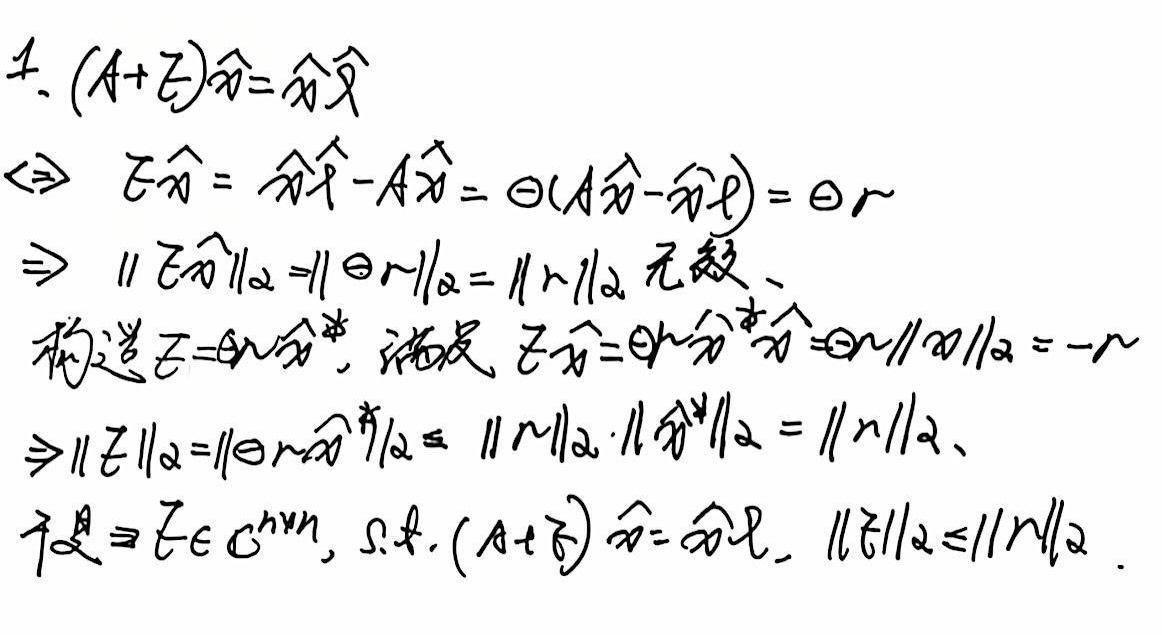 1. (A+E)x̂ = x̂λ̂
⇔ Ex̂ = x̂λ̂ - Ax̂ = ⊖(Ax̂ - x̂λ) = ⊖r
⇒ ||Ex̂||₂ = ||⊖r||₂ = ||r||₂
构造 E = ⊖r x̂*, 满足 Ex̂ = ⊖r x̂* x̂ = ⊖r||x||₂ = -r
⇒ ||E||₂ = ||⊖r x̂*||₂ ≤ ||r||₂·||x̂*||₂ = ||r||₂、
于是 ∃ E∈ℂⁿˣⁿ, s.t. (A+E) x̂ = x̂λ, ||E||₂ ≤ ||r||₂.